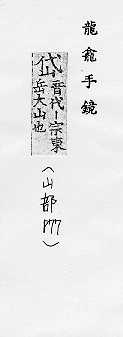 龍龕手鏡
岱 音代〡宗東
岳大山也
(山部 P77)